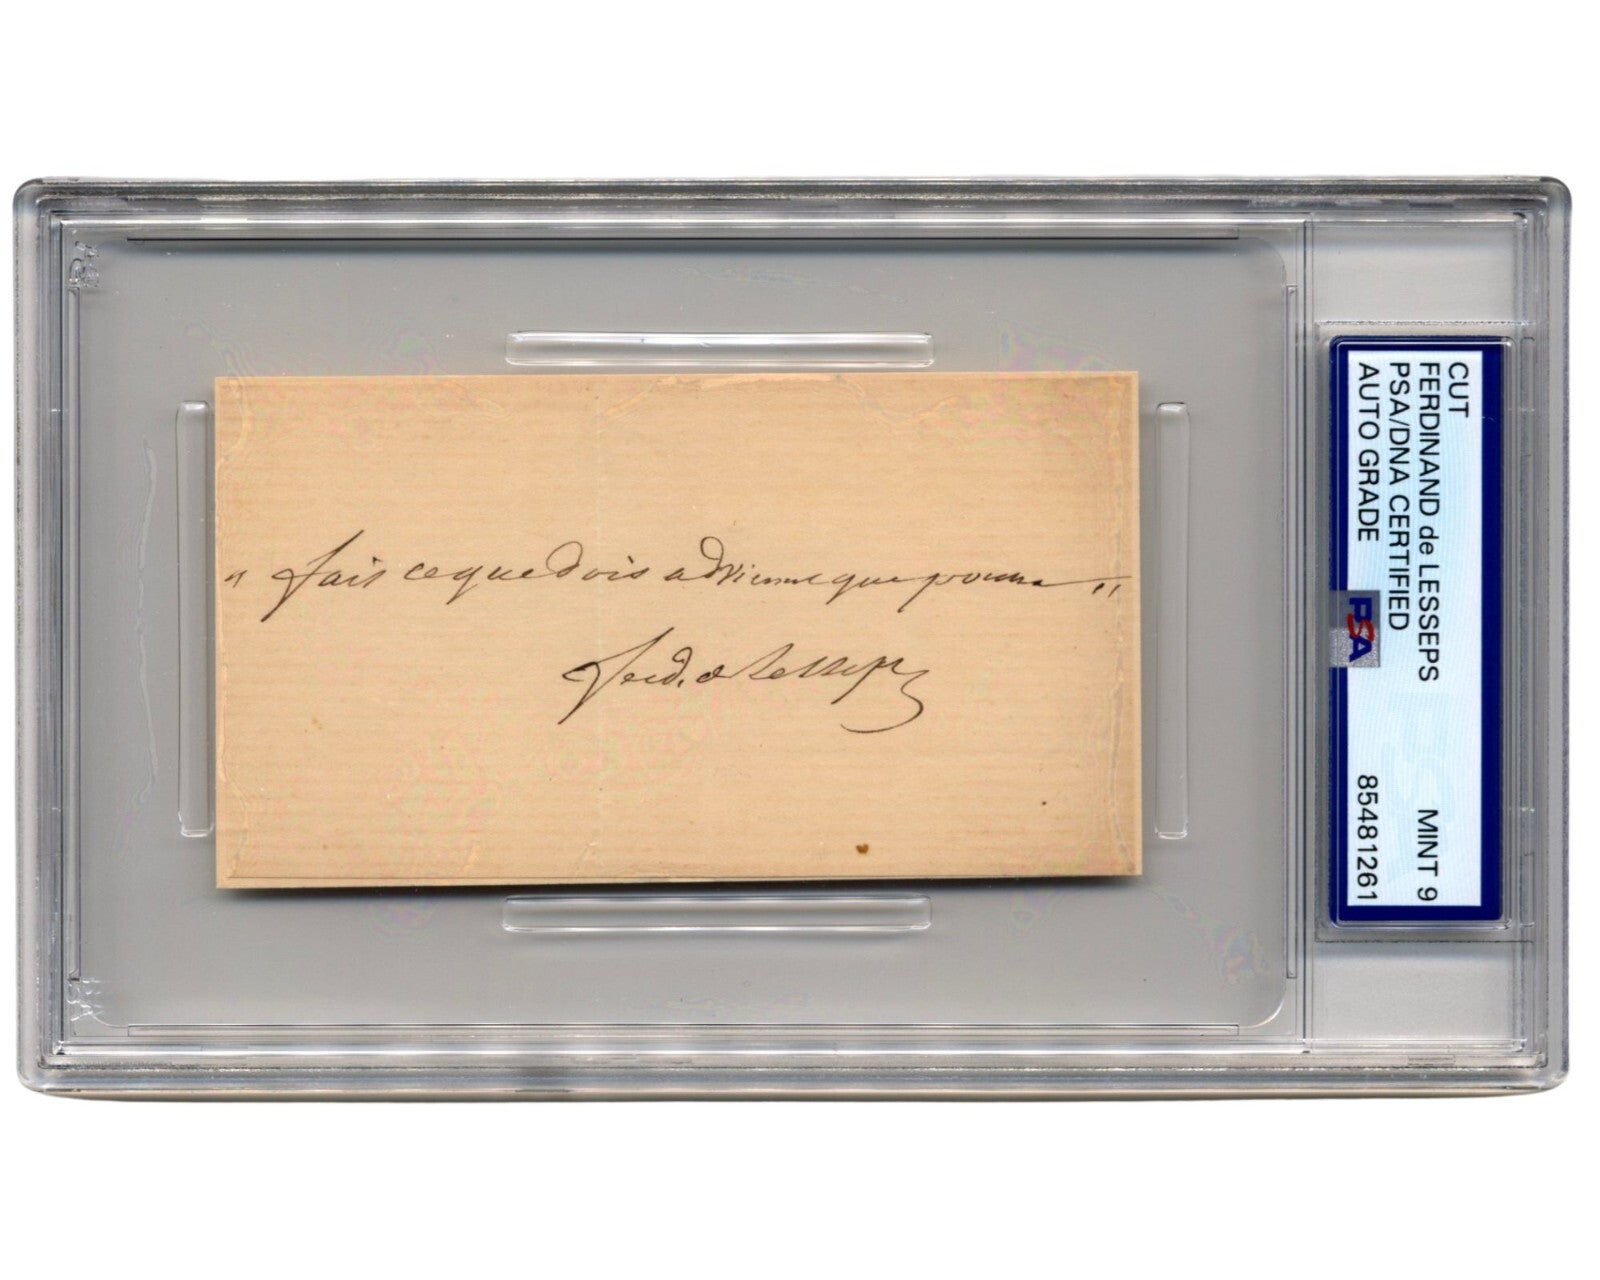 " fais ce que dois advienne que pourra "
Ferd. de Lesseps
CUT
FERDINAND de LESSEPS
PSA/DNA CERTIFIED
AUTO GRADE
MINT 9
85481261
PSA